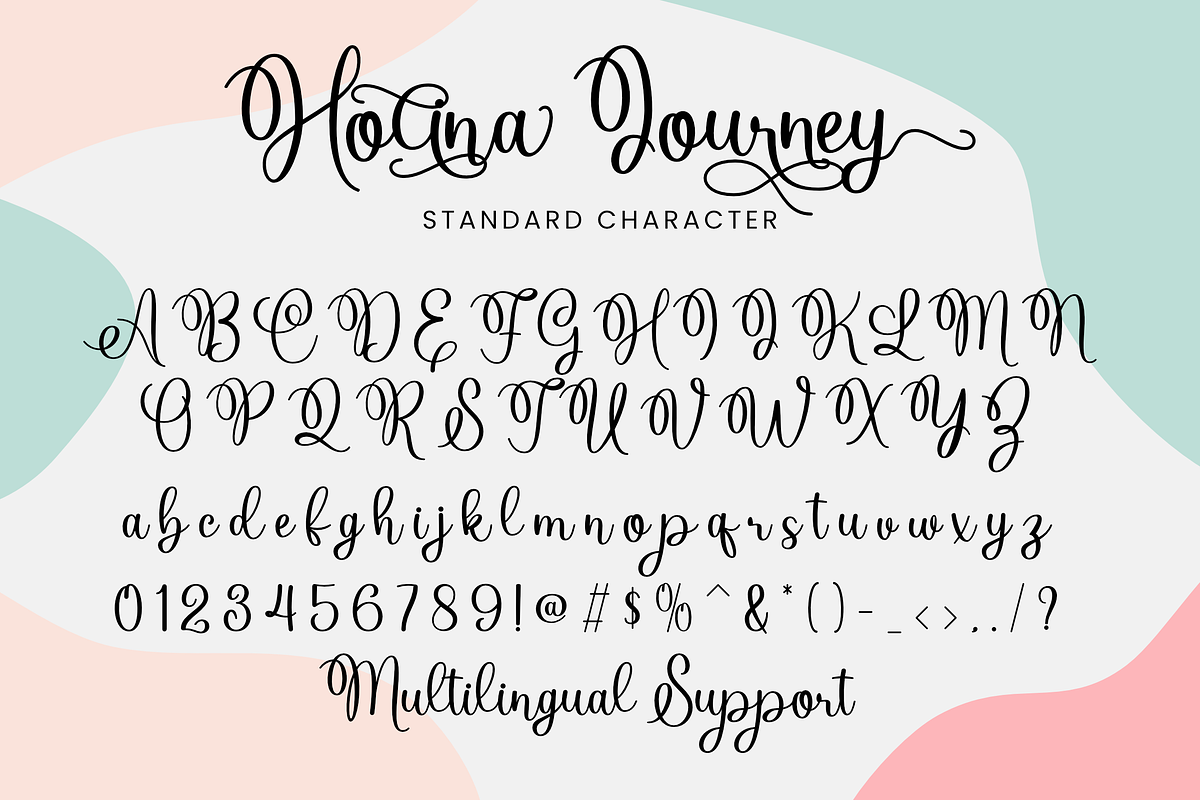 Holina Journey
STANDARD CHARACTER
A B C D E F G H I J K L M N
O P Q R S T U V W X Y Z
a b c d e f g h i j k l m n o p q r s t u v w x y z
0 1 2 3 4 5 6 7 8 9 ! @ # $ % ^ & * ( ) - _ < > , . / ?
Multilingual Support